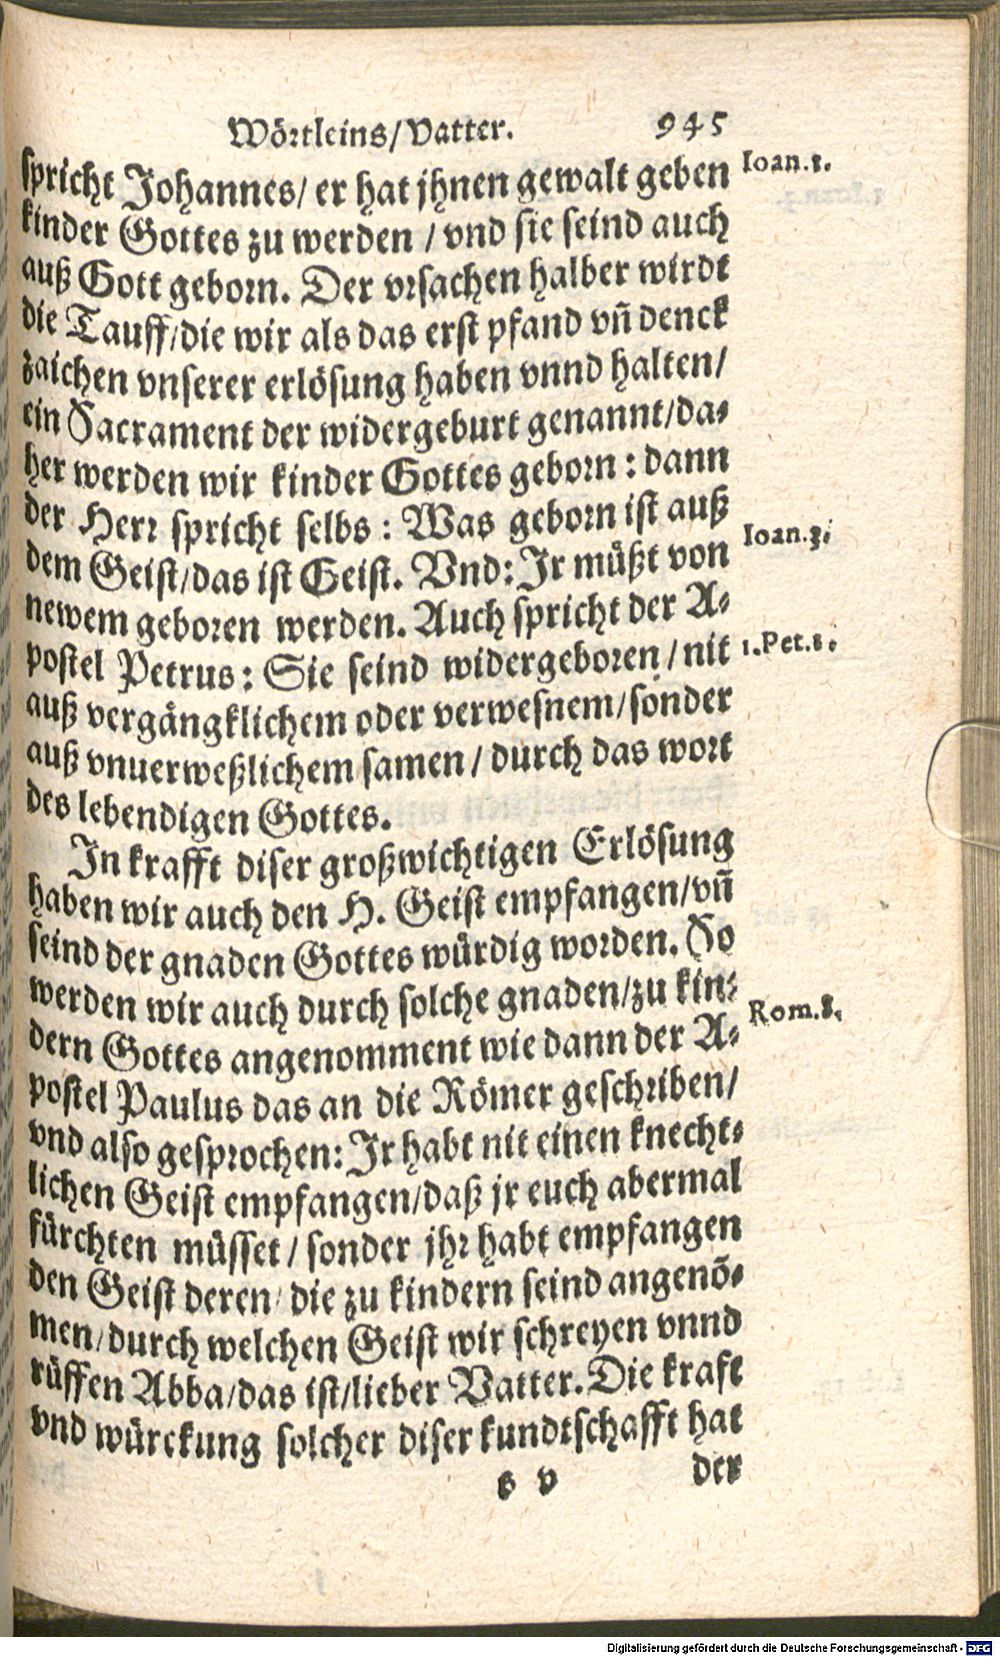 Wörtleins/Vatter. 945
spricht Johannes/ er hat jhnen gewalt geben Ioan.1.
kinder Gottes zu werden / vnd sie seind auch
auß Gott geborn. Der vrsachen halber wirdt
die Tauff/die wir als das erst pfand vn̄ denck
zaichen vnserer erlösung haben vnnd halten/
ein Sacrament der widergeburt genannt/da-
her werden wir kinder Gottes geborn: dann
der Herr spricht selbs: Was geborn ist auß
dem Geist/das ist Geist. Vnd: Ir müßt von Ioan.3.
newem geboren werden. Auch spricht der A-
postel Petrus: Sie seind widergeboren/nit 1.Pet.1.
auß vergängklichem oder verwesnem/sonder
auß vnuerweßlichem samen/ durch das wort
des lebendigen Gottes.
In krafft diser großwichtigen Erlösung
haben wir auch den H. Geist empfangen/vn̄
seind der gnaden Gottes würdig worden. So
werden wir auch durch solche gnaden/zu kin-
dern Gottes angenomment wie dann der A- Rom.8.
postel Paulus das an die Römer geschriben/
vnd also gesprochen: Ir habt nit einen knecht-
lichen Geist empfangen/daß jr euch abermal
fürchten müsset/ sonder jhr habt empfangen
den Geist deren/ die zu kindern seind angenō-
men/durch welchen Geist wir schreyen vnnd
rüffen Abba/das ist/lieber Vatter. Die kraft
vnd würckung solcher diser kundtschafft hat
s v der
Digitalisierung gefördert durch die Deutsche Forschungsgemeinschaft - DFG